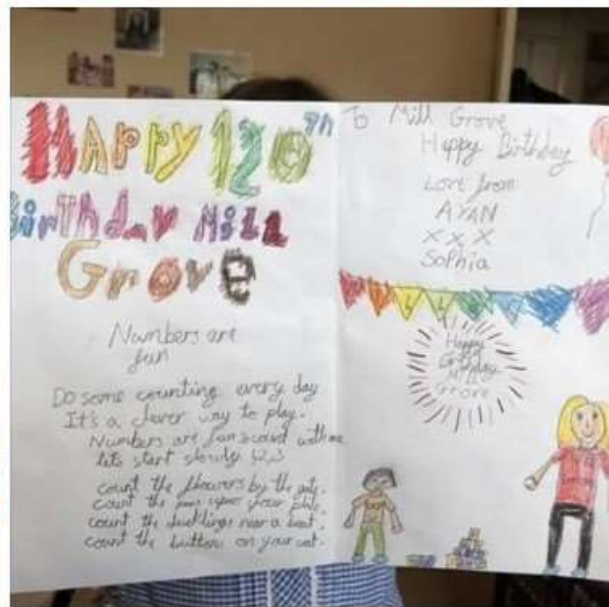 Happy 120th
Birthday Mill
Grove
Numbers are
fun
Do some counting every day
It's a clever way to play.
Numbers are fun count with me
lets start slowly 1,2,3
count the flowers by the gate.
count the peas upon your plate.
count the ducklings near a boat.
count the buttons on your coat.
To Mill Grove
Happy Birthday
Love from
AYAN
XXX
Sophia
Happy
Birthday
Mill
Grove